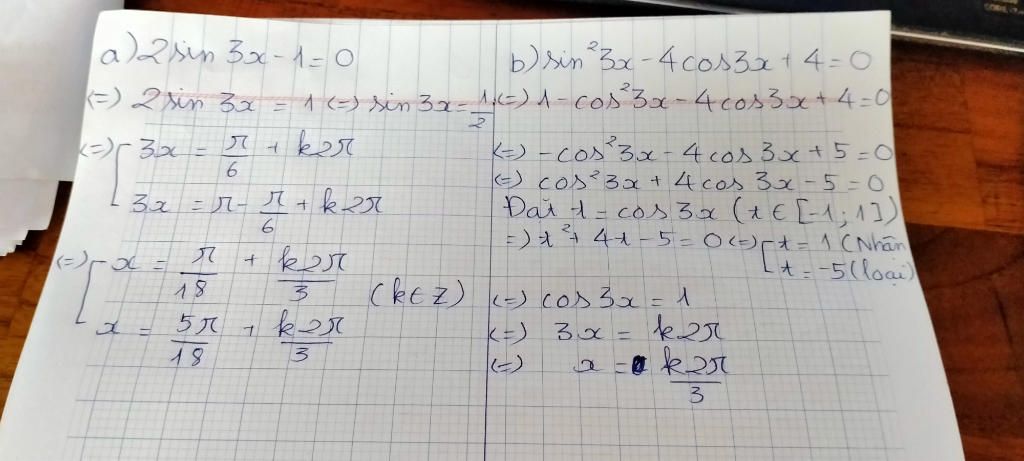 a) 2sin 3x - 1 = 0
(=) 2sin 3x = 1 (=) sin 3x = 1/2
(=) [ 3x = π/6 + k2π
3x = π - π/6 + k2π
(=) [ x = π/18 + k2π/3
(k ∈ Z)
x = 5π/18 + k2π/3
b) sin²3x - 4cos3x + 4 = 0
(=) 1 - cos²3x - 4cos3x + 4 = 0
(=) -cos²3x - 4cos3x + 5 = 0
(=) cos²3x + 4cos3x - 5 = 0
Đặt t = cos3x (t ∈ [-1; 1])
=) t² + 4t - 5 = 0 (=) [ t = 1 (Nhận
t = -5 (loại)
(=) cos3x = 1
(=) 3x = k2π
(=) x = k2π/3